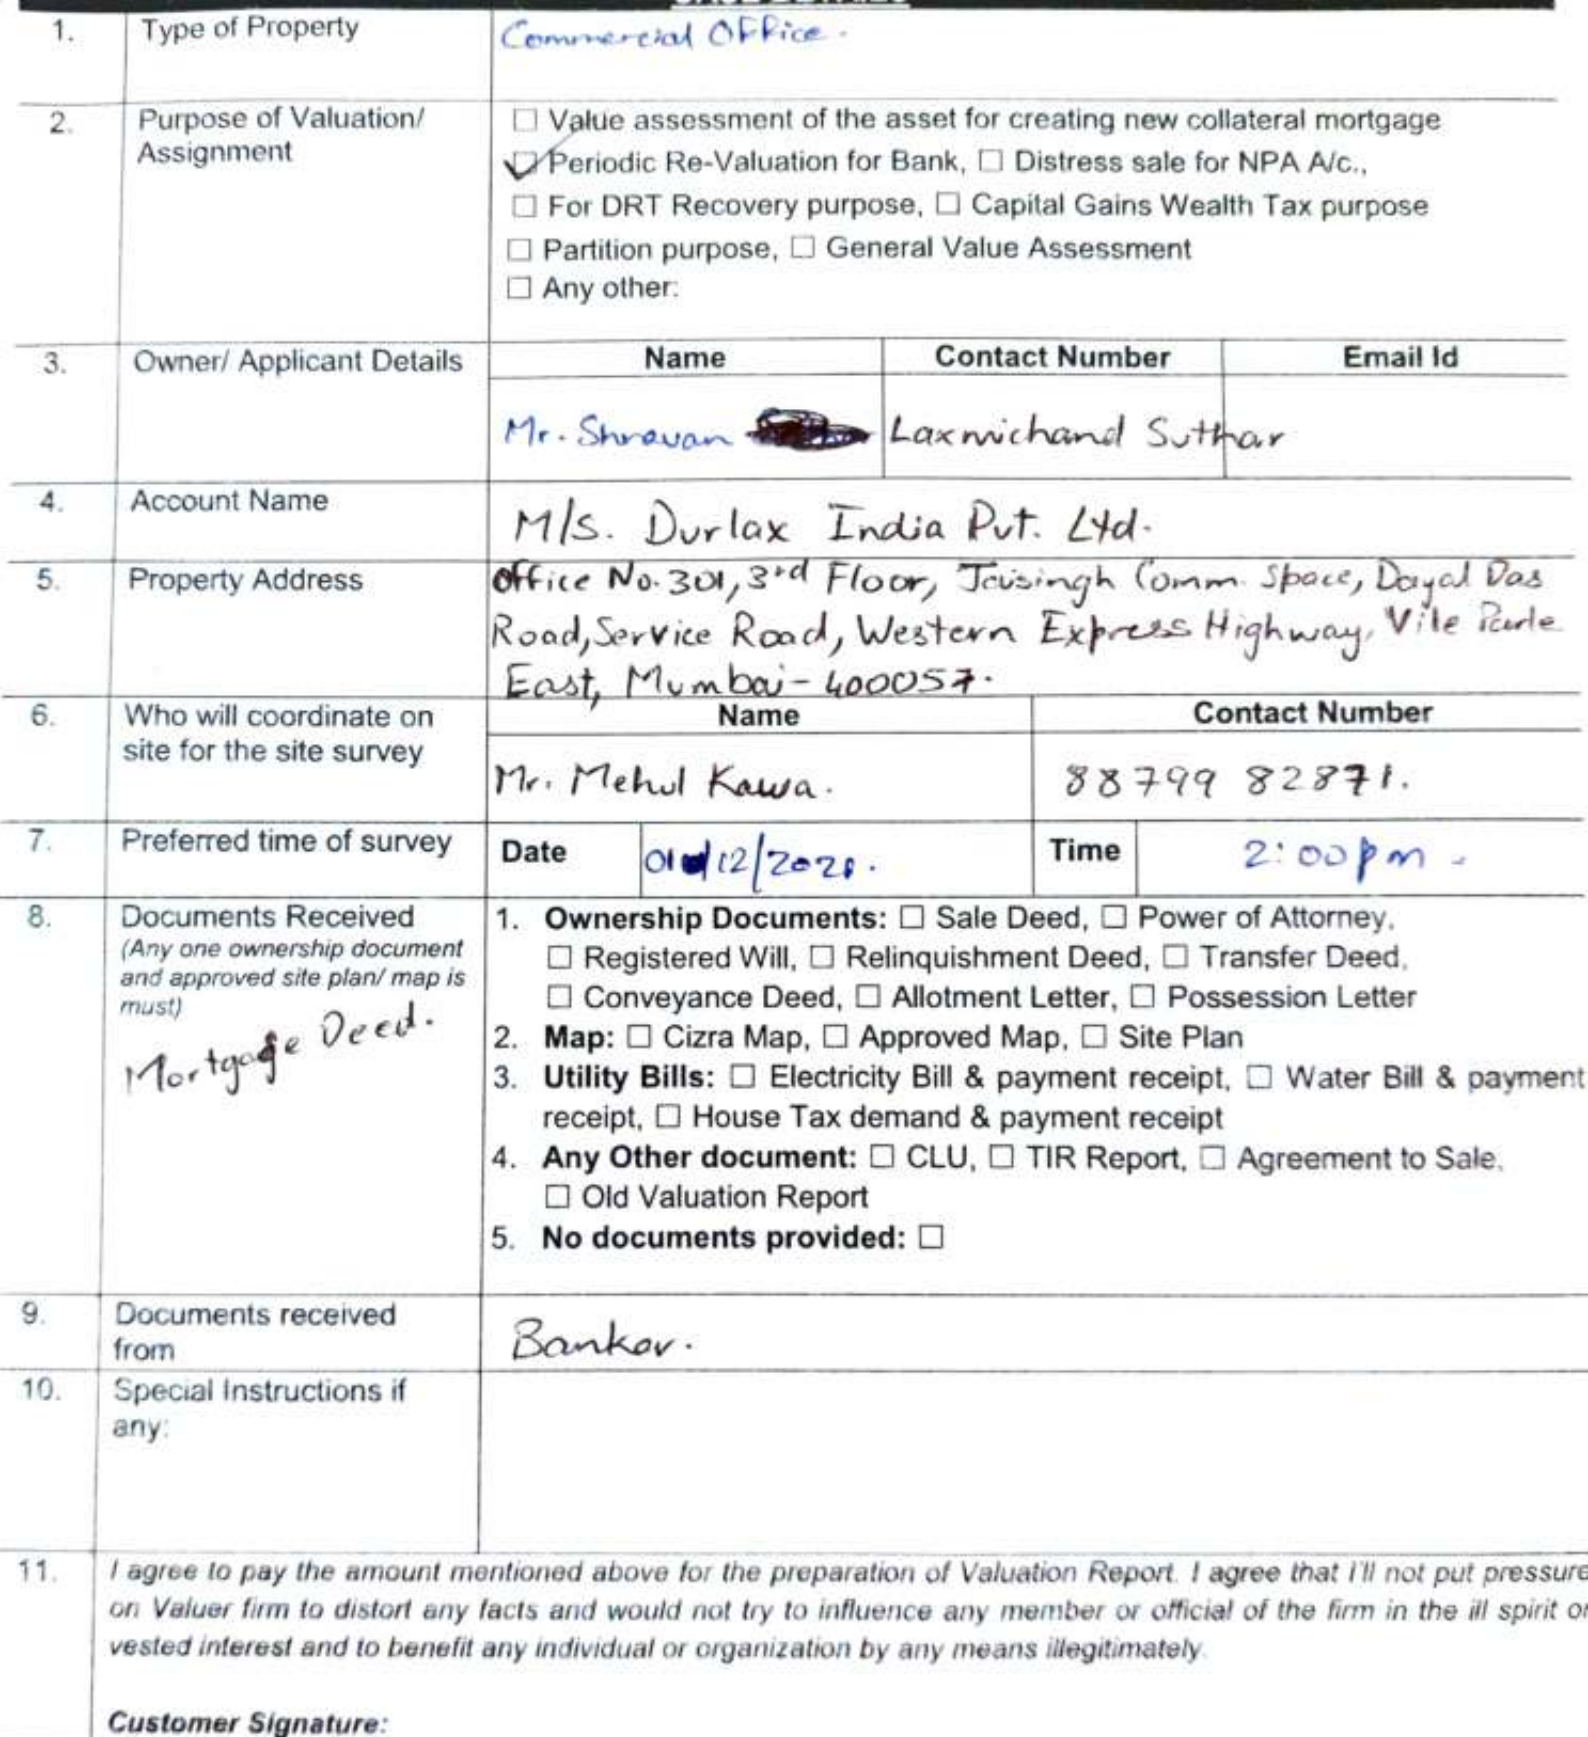 1. Type of Property Commercial Office.
2. Purpose of Valuation/ Assignment
☐ Value assessment of the asset for creating new collateral mortgage
☑ Periodic Re-Valuation for Bank, ☐ Distress sale for NPA A/c.,
☐ For DRT Recovery purpose, ☐ Capital Gains Wealth Tax purpose
☐ Partition purpose, ☐ General Value Assessment
☐ Any other:
3. Owner/ Applicant Details Name Contact Number Email Id
Mr. Shravan Laxmichand Suthar
4. Account Name M/S. Durlax India Pvt. Ltd.
5. Property Address office No. 301, 3rd Floor, Jaisingh Comm. Space, Dayal Das
Road, Service Road, Western Express Highway, Vile Parle
East, Mumbai - 400057.
6. Who will coordinate on Name Contact Number
site for the site survey
Mr. Mehul Kawa. 88799 82871.
7. Preferred time of survey Date /12/2021. Time 2:00 pm -
8. Documents Received
(Any one ownership document
and approved site plan/ map is
must)
Mortgage Deed.
1. Ownership Documents: ☐ Sale Deed, ☐ Power of Attorney,
☐ Registered Will, ☐ Relinquishment Deed, ☐ Transfer Deed,
☐ Conveyance Deed, ☐ Allotment Letter, ☐ Possession Letter
2. Map: ☐ Cizra Map, ☐ Approved Map, ☐ Site Plan
3. Utility Bills: ☐ Electricity Bill & payment receipt, ☐ Water Bill & payment
receipt, ☐ House Tax demand & payment receipt
4. Any Other document: ☐ CLU, ☐ TIR Report, ☐ Agreement to Sale,
☐ Old Valuation Report
5. No documents provided: ☐
9. Documents received
from
Banker.
10. Special Instructions if
any:
11. I agree to pay the amount mentioned above for the preparation of Valuation Report. I agree that I'll not put pressure
on Valuer firm to distort any facts and would not try to influence any member or official of the firm in the ill spirit or
vested interest and to benefit any individual or organization by any means illegitimately.
Customer Signature: